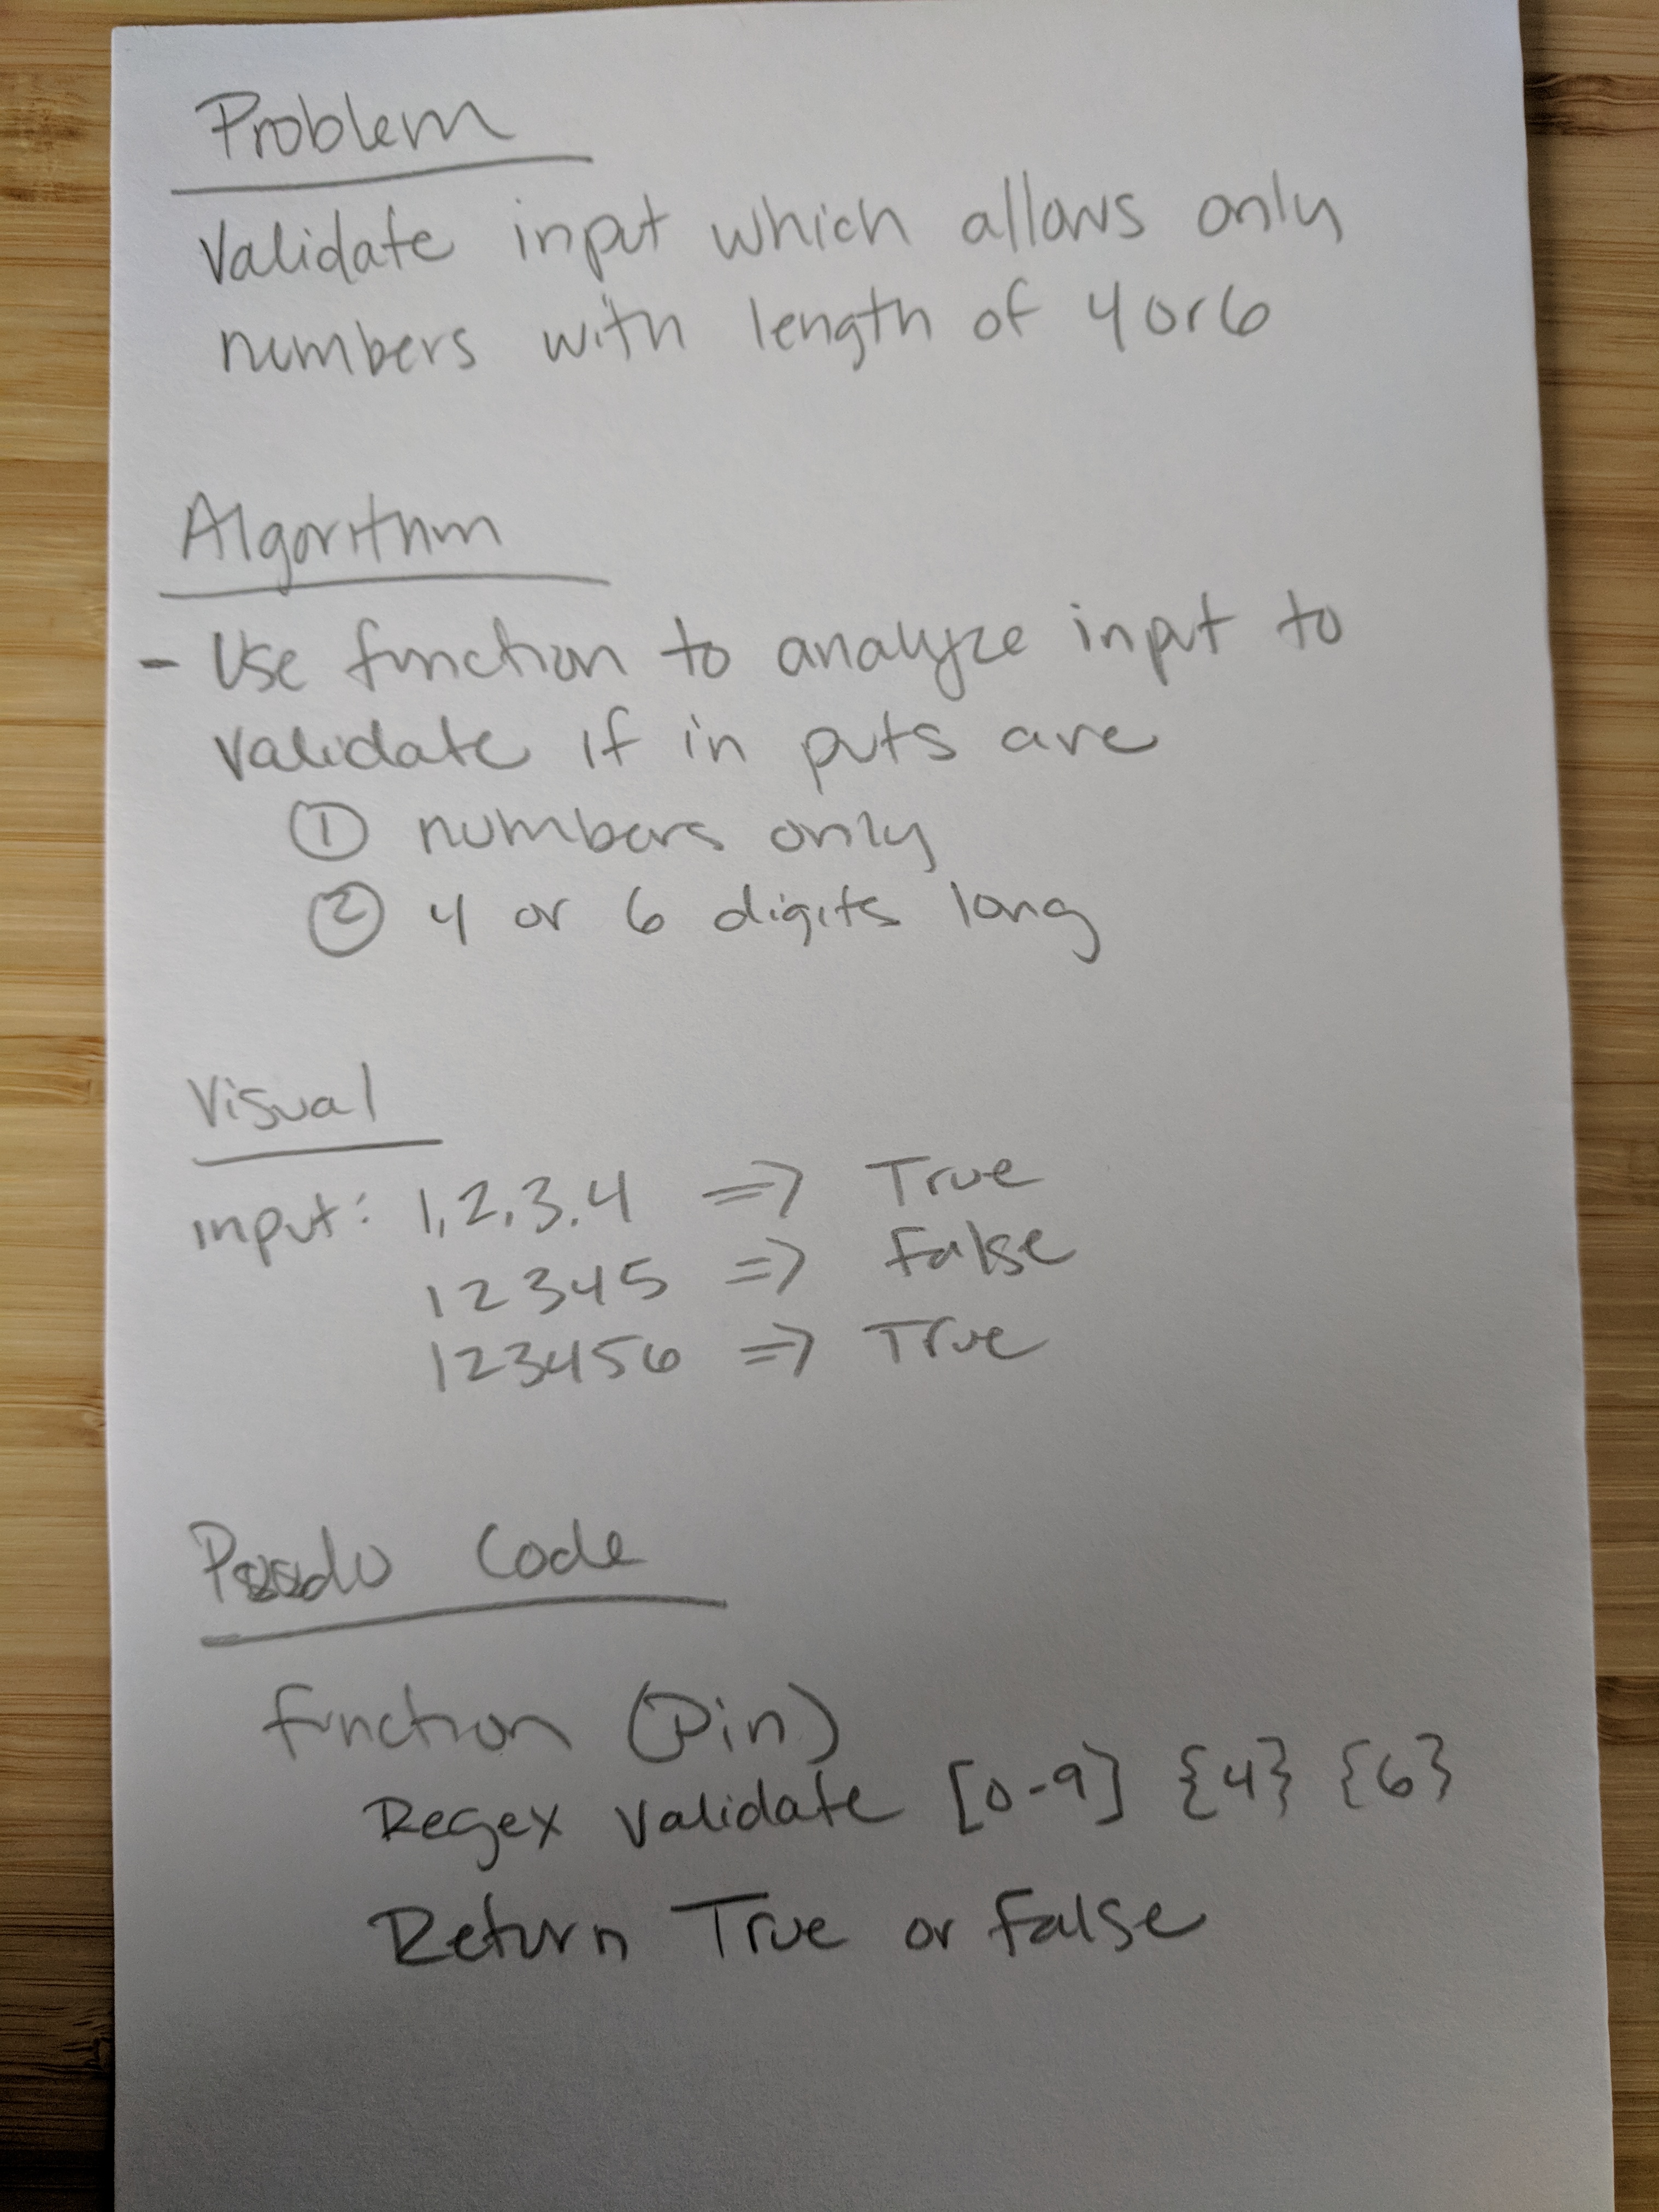 Problem
Validate input which allows only
numbers with length of 4 or 6
Algorithm
- Use function to analyze input to
validate if in puts are
① numbers only
② 4 or 6 digits long
Visual
input: 1,2,3.4 => True
12345 => False
123456 => True
Code
function (Pin)
Regex validate [0-9] {4} {6}
Return True or False